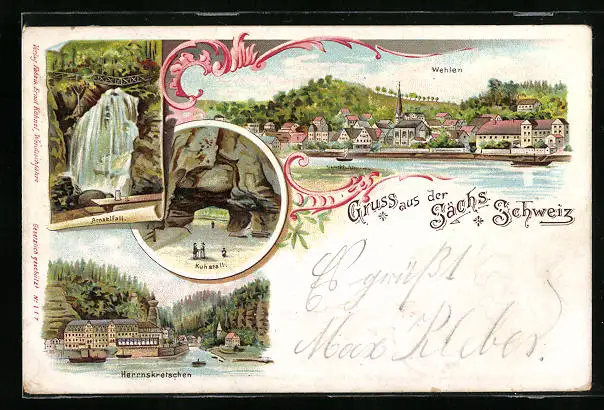 Wehlen
Amselfall.
Kuhstall.
Gruss aus der Sächs. Schweiz
Herrnskretschen
Es grüßt
Max Kleber.
Verlag Fabrik Ernst
Gesetzlich geschützt Nr. 117